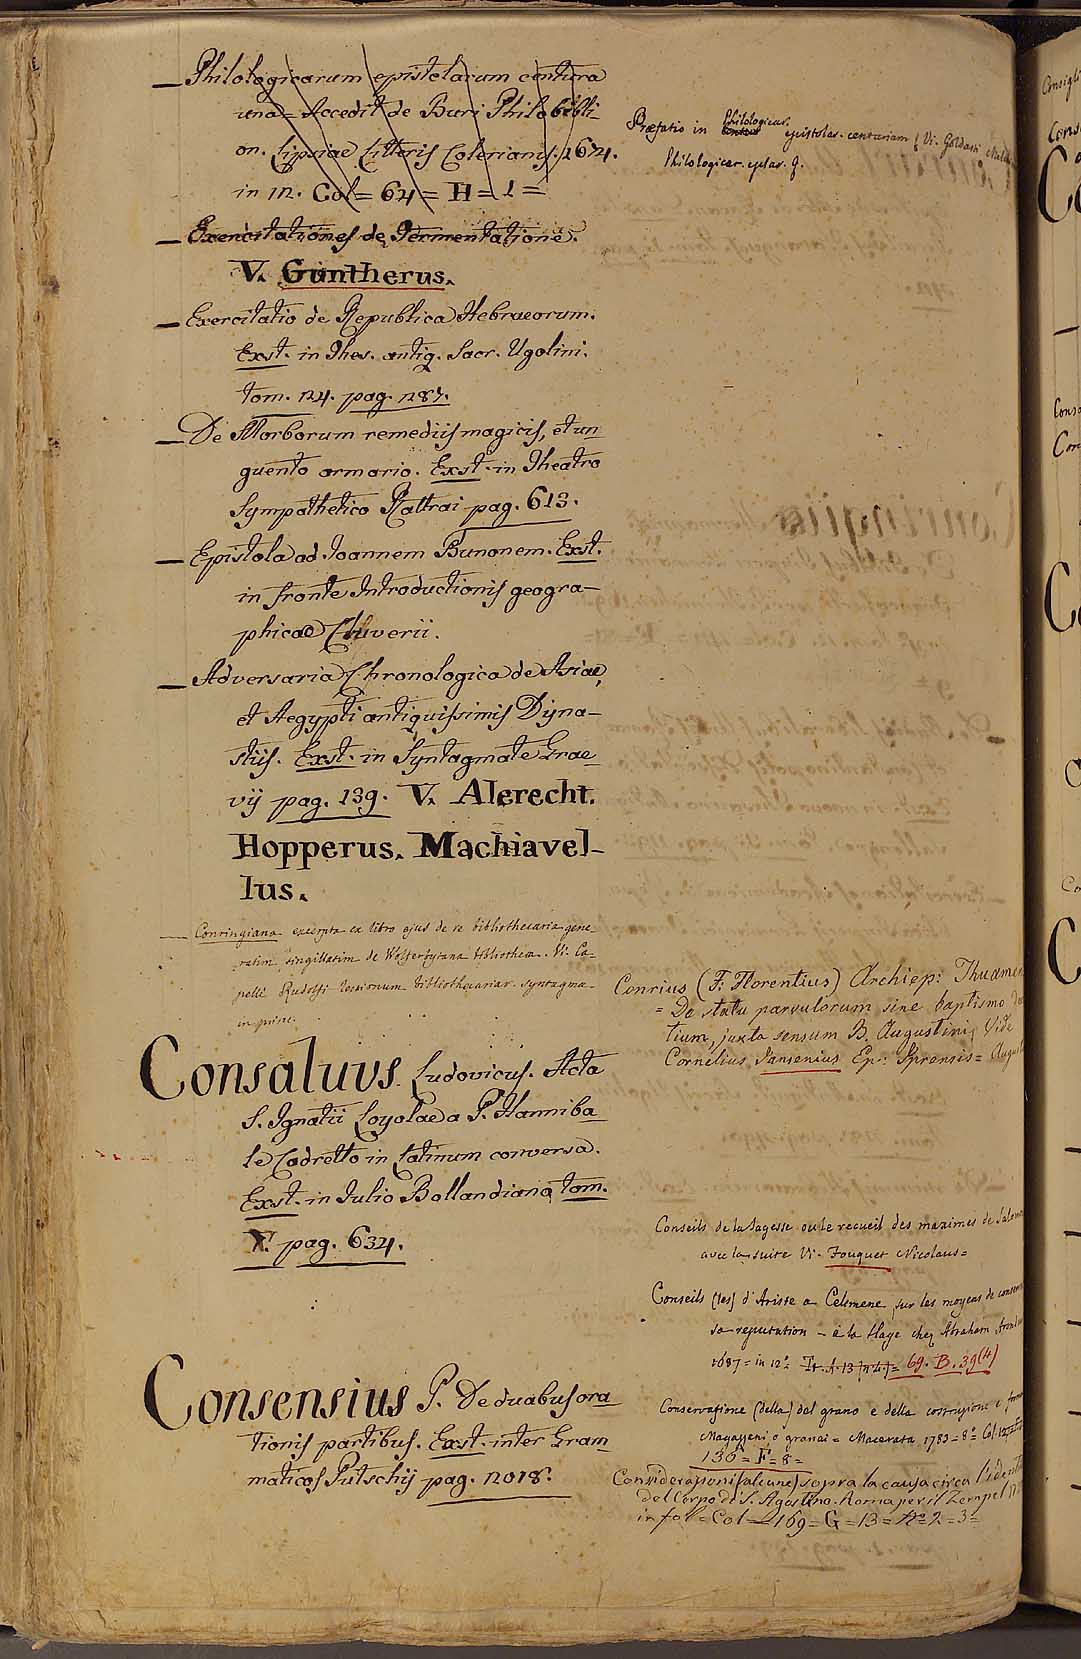 Philologicarum epistolarum centura
una = Accedit de Buri Philobibli-
on. Lipsiae Litteris Colerianis. 1674.
in 12. Col = 64 = H = 1 =
Exercitationes de Fermentatione.
V. Guntherus.
Exercitatio de Republica Hebraeorum.
Exst. in Thes. antiq. Sacr. Ugolini.
tom. 24. pag. 287.
De Morborum remediis magicis, et un
guento armario. Exst. in Theatro
Sympathetico Rattrai pag. 613.
Epistola ad Joannem Bunonem. Exst.
in fronte Introductionis geogra-
phicae Cluverii.
Adversaria Chronologica de Asiae,
et Aegypti antiquissimis Dyna-
stiis. Exst. in Syntagmate Grae
vij pag. 139. V. Alerecht.
Hopperus. Machiavel-
lus.
Conringiana excerpta ex libro ejus de re bibliothecaria gene
ratim, singillatim de Wolferbytana bibliotheca. Vi. Ca-
pelli Rudolfi lectionum bibliothecariar. syntagma-
in princ.
Consaluus Ludovicus. Acta
S. Ignatii Loyolae a P. Hanniba
le Codretto in Latinum conversa.
Exst. in Julio Bollandiano tom.
pag. 634.
Consensius P. De duabus ora
tionis partibus. Exst. inter Gram
maticos Putschij pag. 2018.
Praefatio in Philologicar. epistolar. centuriam (Vi. Goldasti
Philologicar. eplar.
Conrius (F: Florentius) Archiep: Thuamen
= De statu parvulorum sine baptismo
tium, juxta sensum B. Augustini; Vide
Cornelius Jansenius Ep: Iprensis = August
Conseils de la Sagesse ou le recueil des maximes de Salom
avec la suite Vi. Fouquet Nicolaus =
Conseils (les) d'Ariste a Celemene sur les moyens de conser
sa reputation - à la Haye chez Abraham
1687 = in 12º = 69. B. 39 (4)
Conservazione (della) del grano e della costruzione e
Magazzeni o granai = Macerata 1783 = 8º = Col
136 = F = 8 =
Considerazioni (alcune) sopra la causa circa l'identi
del Corpo di S. Agostino. Roma per il Zempel
in fol = Col = 169 = G = 13 = Nº 2 = 3 =